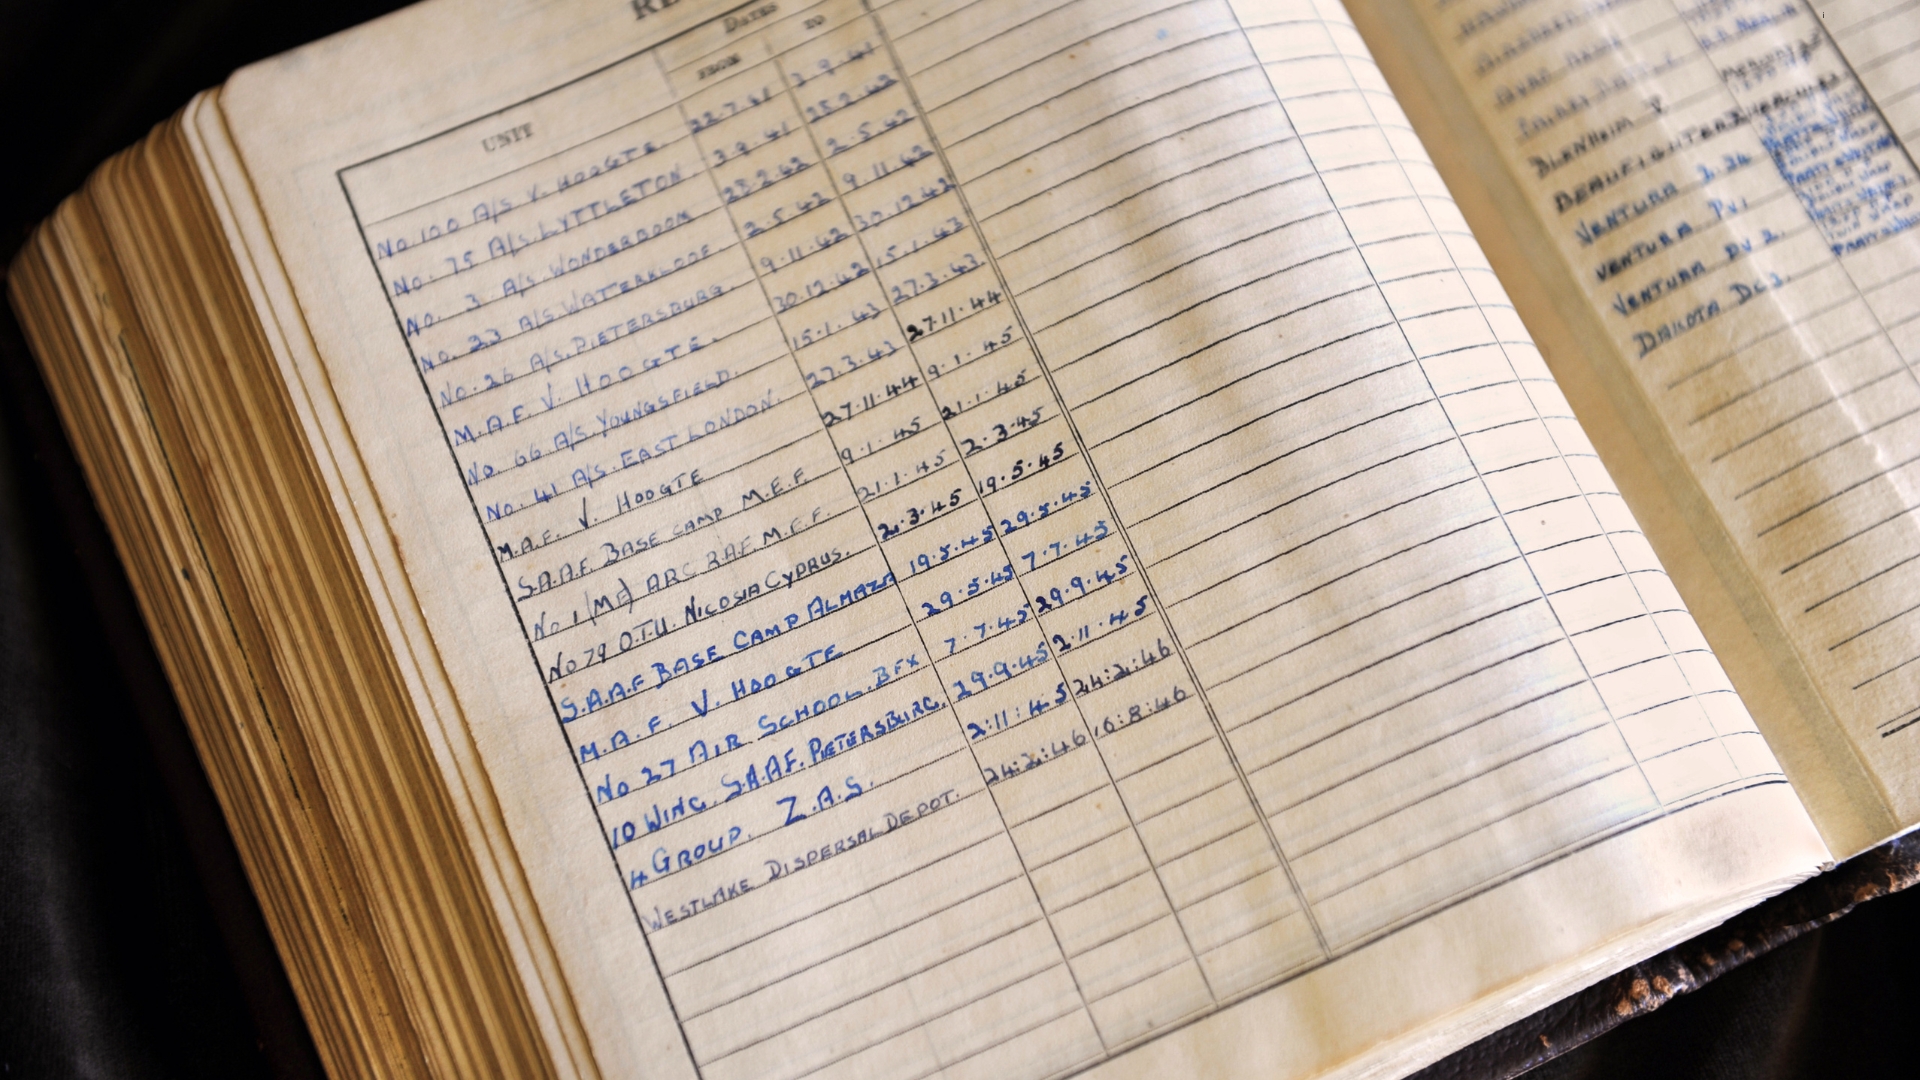 DATES
UNIT FROM TO
No. 100 A/S V. HOOGTE. 22.7.41 3.9.41
No. 75 A/S. LYTTLETON. 3.9.41 25.2.42
No. 3 A/S. WONDERBOOM 25.2.42 2.5.42
No. 23 A/S. WATERKLOOF. 2.5.42 9.11.42
No. 26 A/S. PIETERSBURG. 9.11.42 30.12.42
M.A.F. V. HOOGTE. 30.12.42 15.1.43
No 66 A/S YOUNGSFIELD. 15.1.43 27.3.43
No. 41 A/S. EAST LONDON. 27.3.43 27.11.44
M.A.F. V. HOOGTE 27.11.44 9.1.45
S.A.A.F. BASE CAMP M.E.F. 9.1.45 21.1.45
No 1 (ME) ARC RAF M.E.F. 21.1.45 2.3.45
No 79 O.T.U. NICOSIA CYPRUS. 2.3.45 19.5.45
S.A.A.F BASE CAMP ALMAZA 19.5.45 29.5.45
M.A.F. V. HOOGTE 29.5.45 7.7.45
No 27 AIR SCHOOL. BFX 7.7.45 29.9.45
10 WING. S.A.A.F. PIETERSBURG. 29.9.45 2.11.45
4 GROUP. Z.A.S. 2:11:45 24:2:46
WESTLAKE DISPERSAL DEPOT. 24:2:46 16:8:46
BLENHEIM V
BEAUFIGHTER
VENTURA
VENTURA PV1
VENTURA PV 2.
DAKOTA DC3.